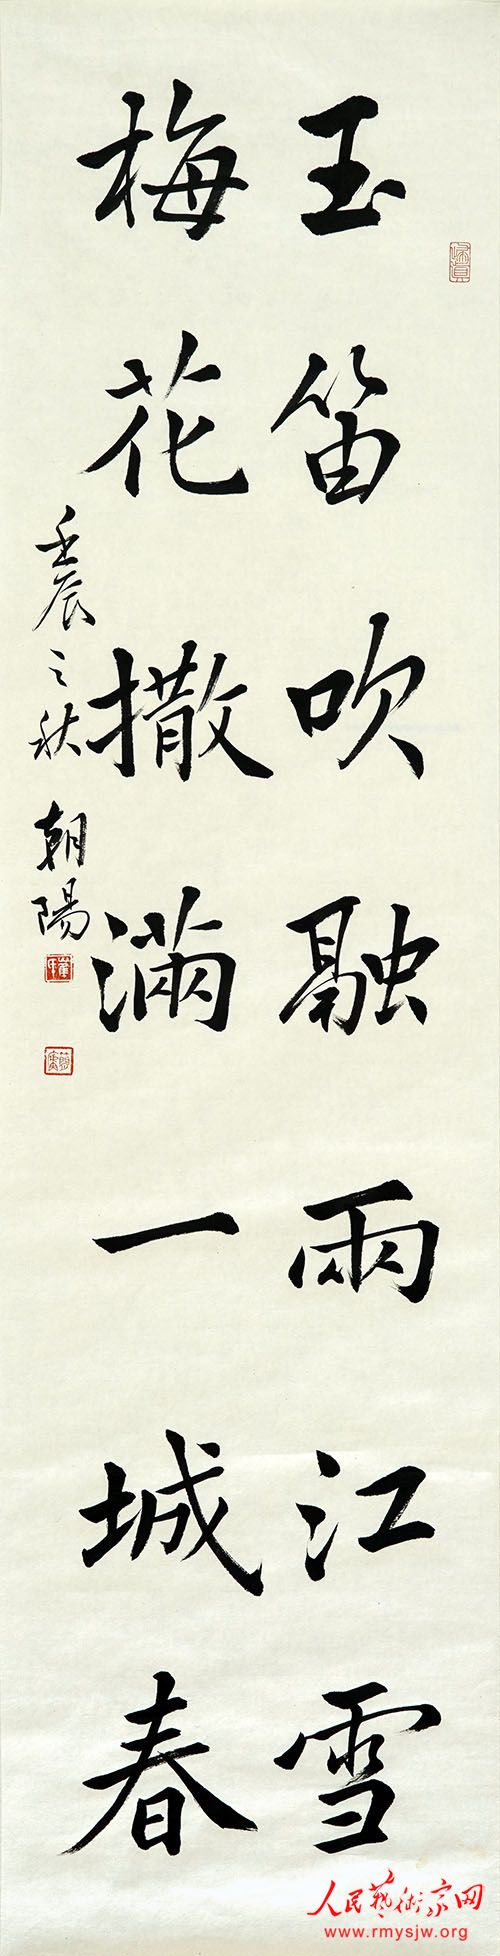 玉笛吹融兩江雪
梅花撒滿一城春
壬辰之秋 朝陽
人民藝術家网
www.rmysjw.org